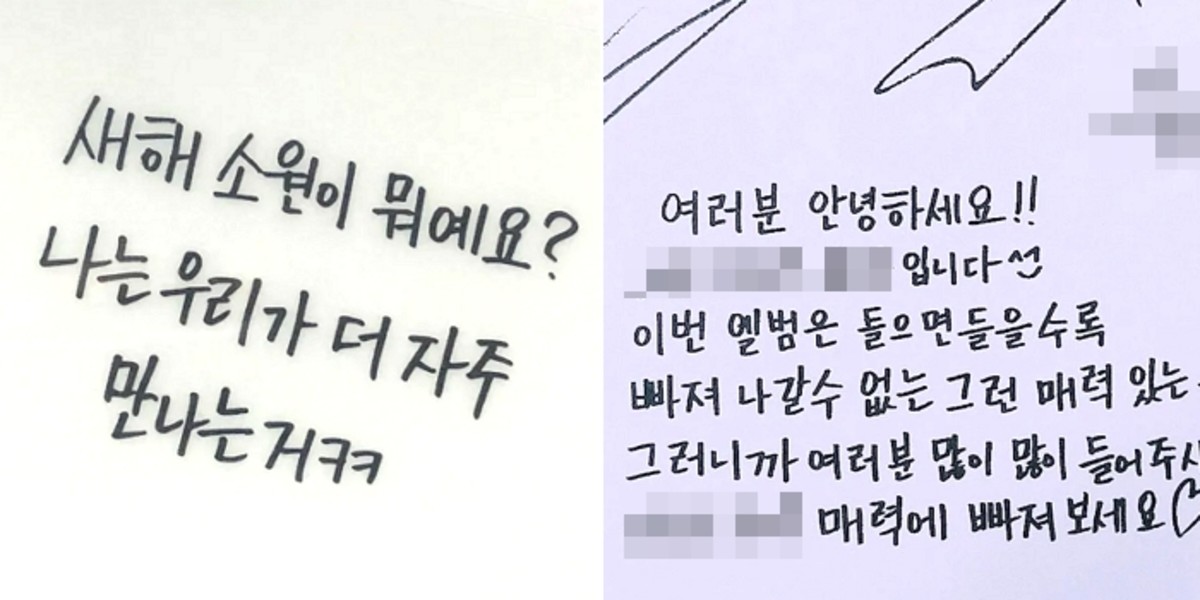 새해 소원이 뭐예요?
나는 우리가 더 자주
만나는 거ㅋㅋ
여러분 안녕하세요!!
입니다
이번 엘범은 들으면들을수록
빠져 나갈수 없는 그런 매력 있는
그러니까 여러분 많이 많이 들어주시
매력에 빠져보세요♡